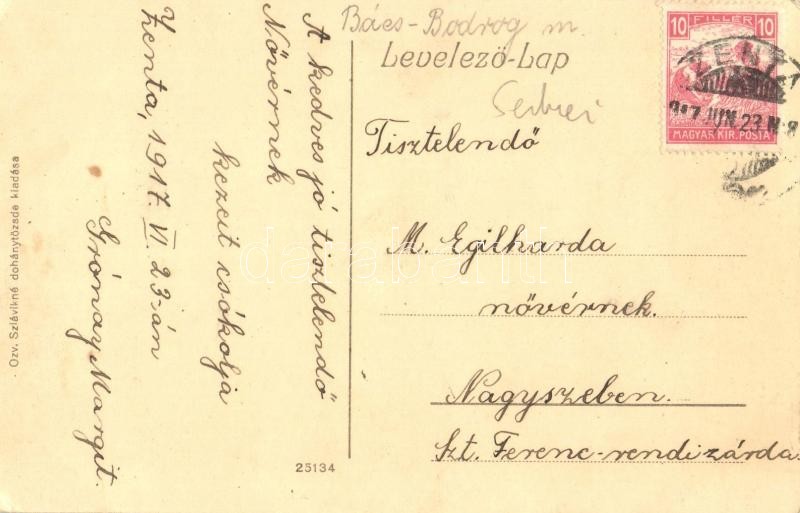 Bács-Bodrog m.
Levelező-Lap
10 FILLÉR 10
MAGYAR KIR. POSTA
ZENTA
917 JUN. 23
Tisztelendő
M. Egilharda
nővérnek.
Nagyszeben.
Szt. Ferenc-rendizárda.
A kedves jó tisztelendő
Nővérnek
kezeit csókolja
Zenta, 1917. VI. 23-án
Grónay Margit.
Özv. Szlávikné dohánytőzsde kiadása
25134
darabanth